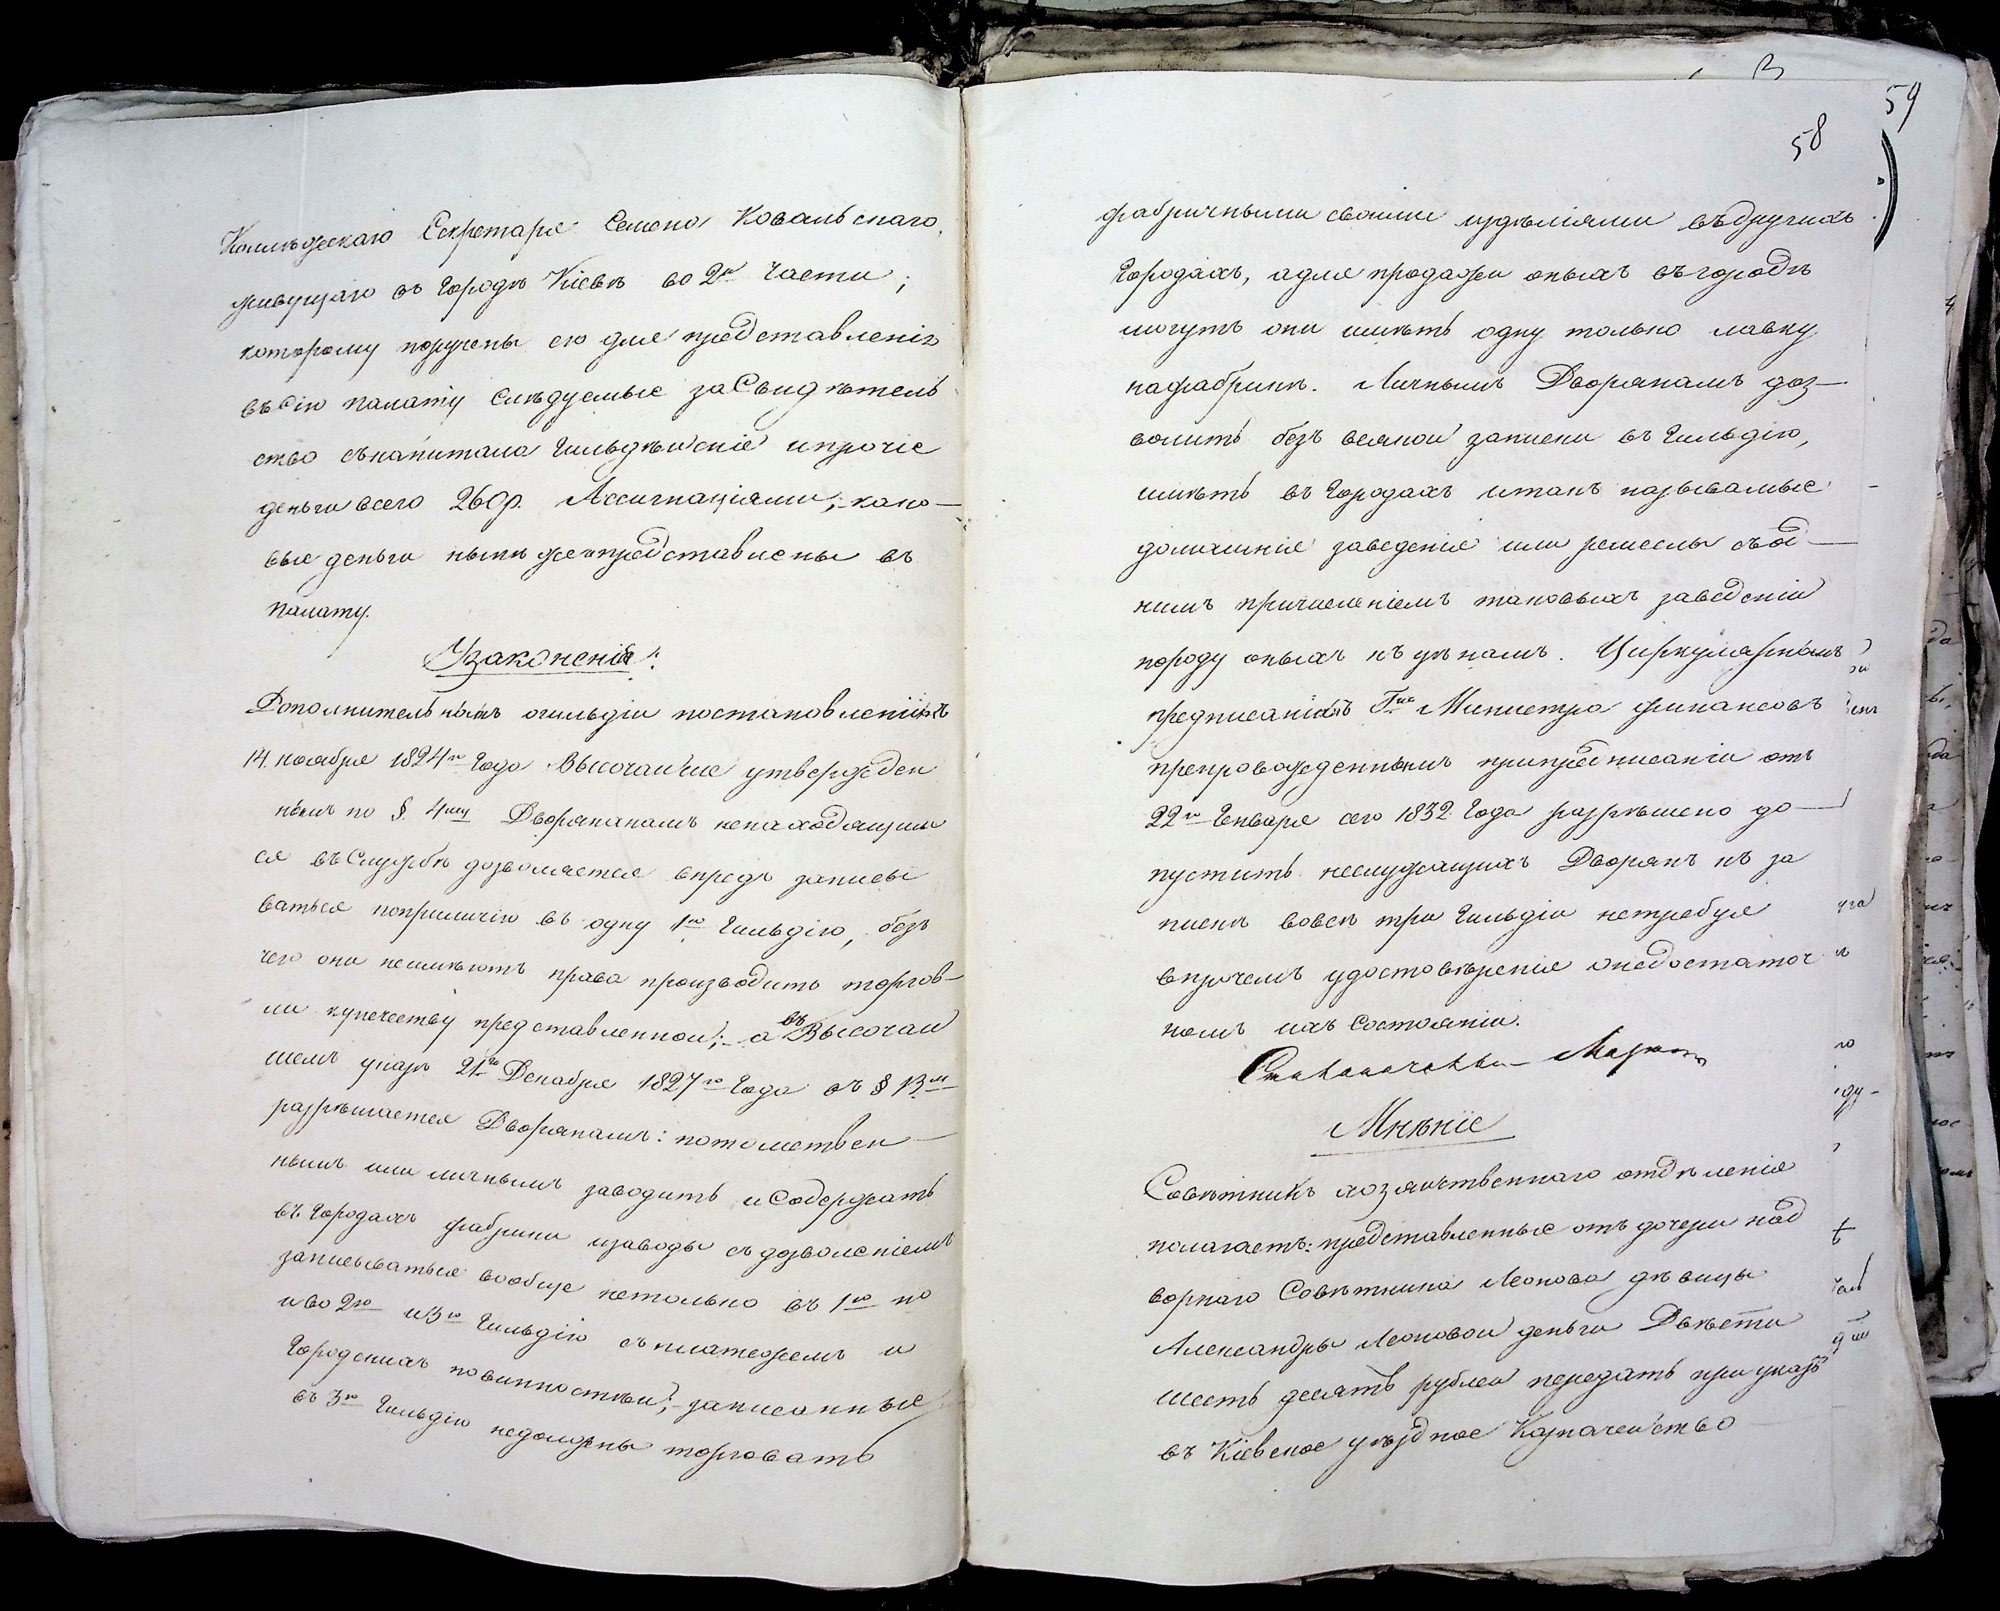 Коллежскаго Секретаря Семена Ковальскаго,
живущаго въ Городѣ Кіевѣ во 2й Части;
которому поручены ею для представленія
въ сію палату слѣдуемые за Свидѣтель
ство съ капитала Гильдейскіе и прочіе
деньги всего 260р. Ассигнаціями; како-
вые деньги нынѣ же и представлены въ
палату.
Узаконеніе:
Дополнительнымъ о гильдіи постановленіемъ
14. ноября 1824го Года Высочайше утвержден
нымъ по §. 4му Дворянамъ ненаходящим
ся въ Службѣ дозволяется впредь записы
ваться по приличію въ одну 1ю Гильдію, безъ
чего они неимѣютъ права производить торгов-
ли купечеству представленной; а въ Высочай
шемъ указѣ 21го Декабря 1827го Года въ § 13м
разрѣшается Дворянамъ: потомствен-
нымъ или личнымъ заводить и Содержать
въ Городахъ фабрики и заводы съ дозволеніемъ
записываться вообще нетолько въ 1ю но
и во 2ю и 3ю Гильдію съ платежемъ и
Городскихъ повинностей; записанные
въ 3ю Гильдію недолжны торговать
59
58
фабричными своими издѣліями въ другихъ
Городахъ, а для продажи оныхъ въ городѣ
могутъ они имѣть одну только лавку
на фабрикѣ. Личнымъ Дворянамъ доз-
волить безъ всякой записки въ Гильдію,
имѣть въ Городахъ и такъ называмые
домашніе заведеніе или ремеслы съ од-
нимъ причисленіемъ таковыхъ заведеній
по роду оныхъ къ цѣхамъ. Циркулярнымъ
предписаніемъ Гна Министра финансовъ
препровожденнымъ при предписаніи отъ
22го Генваря сего 1832 Года разрѣшено до-
пустить неслужащихъ Дворянъ къ за
пискѣ во всѣ три Гильдіи нетребуя
впрочемъ удостовѣренія о недостаточ
номъ ихъ Состояніи.
Мнѣніе
Совѣтникъ хозяйственнаго отдѣленія
полагаетъ: представленные отъ дочери над
ворнаго Совѣтника Леонова дѣвицы
Александры Леоновой деньги Двѣсти
шесть десятъ рублей передать при указѣ
въ Кіевское уѣздное Казначейство